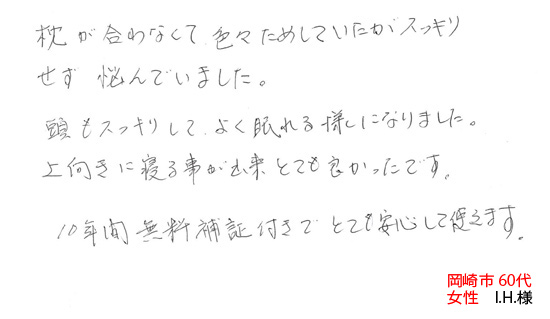 枕が合わなくて色々ためしていたがスッキリ
せず 悩んでいました。
頭もスッキリして よく眠れる様になりました。
上向きに寝る事が出来とても良かったです。
10年間無料補証付きで とても安心して使えます。
岡崎市 60代
女性 I.H.様